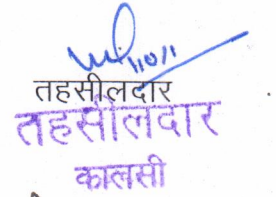 तहसीलदार
तहसीलदार
कालसी